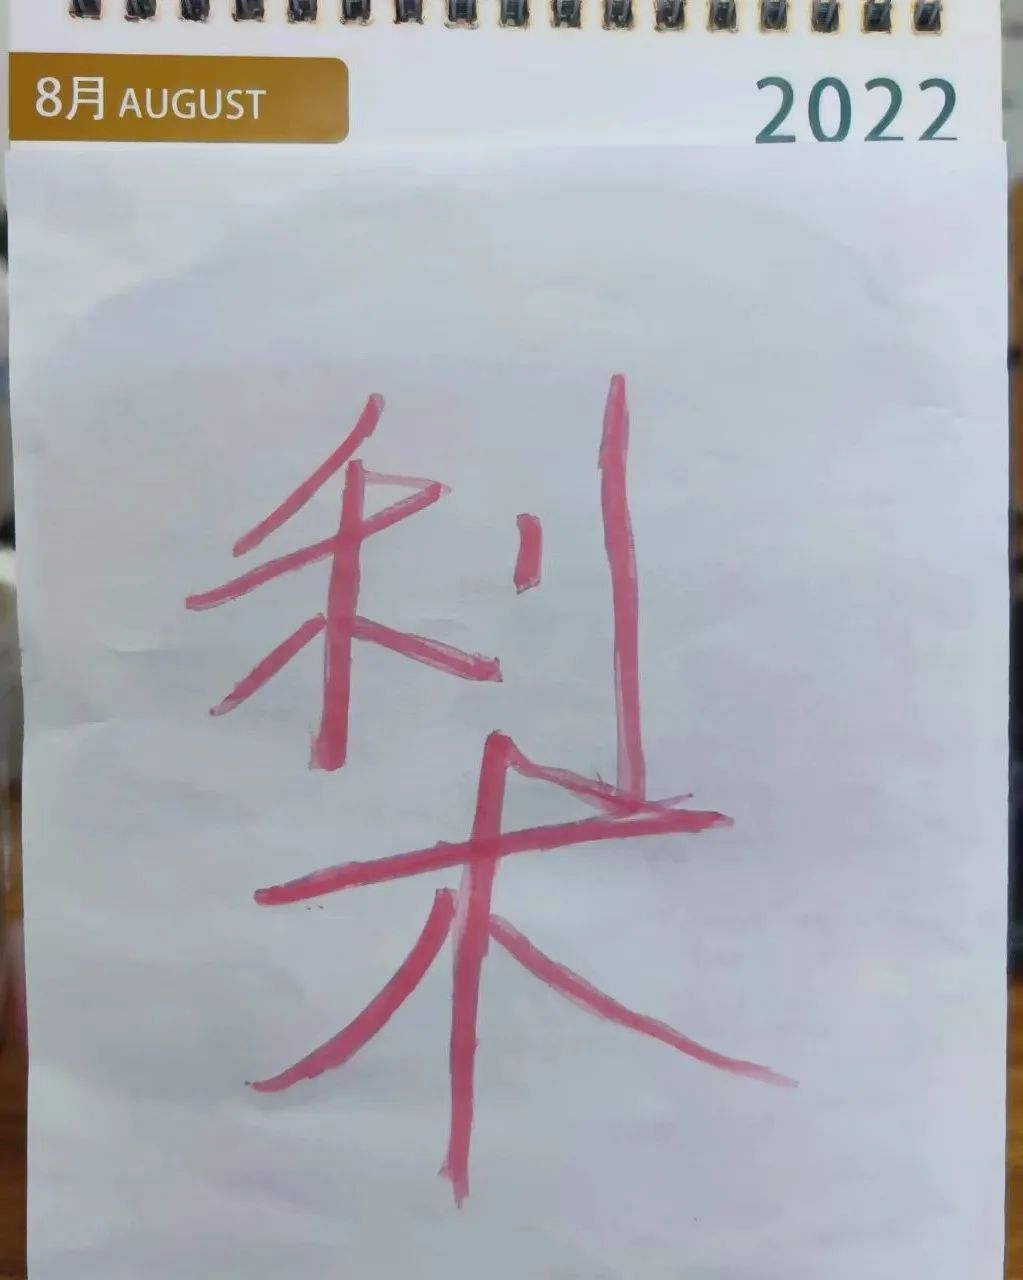 8月 AUGUST
2022
梨